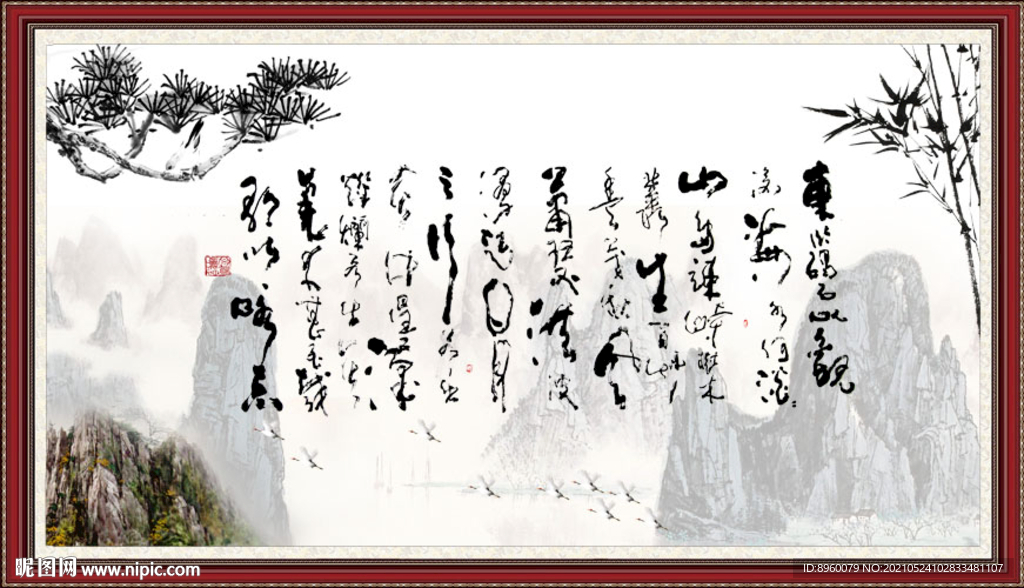 東临碣石以觀
滄海水何澹〻
山島竦峙樹木
叢生百草
豐茂秋風
蕭瑟洪波
湧起日月
之行若出
燦爛若出
甚至哉
歌以咏志
昵图网 www.nipic.com
ID:8960079 NO:20210524102833481107